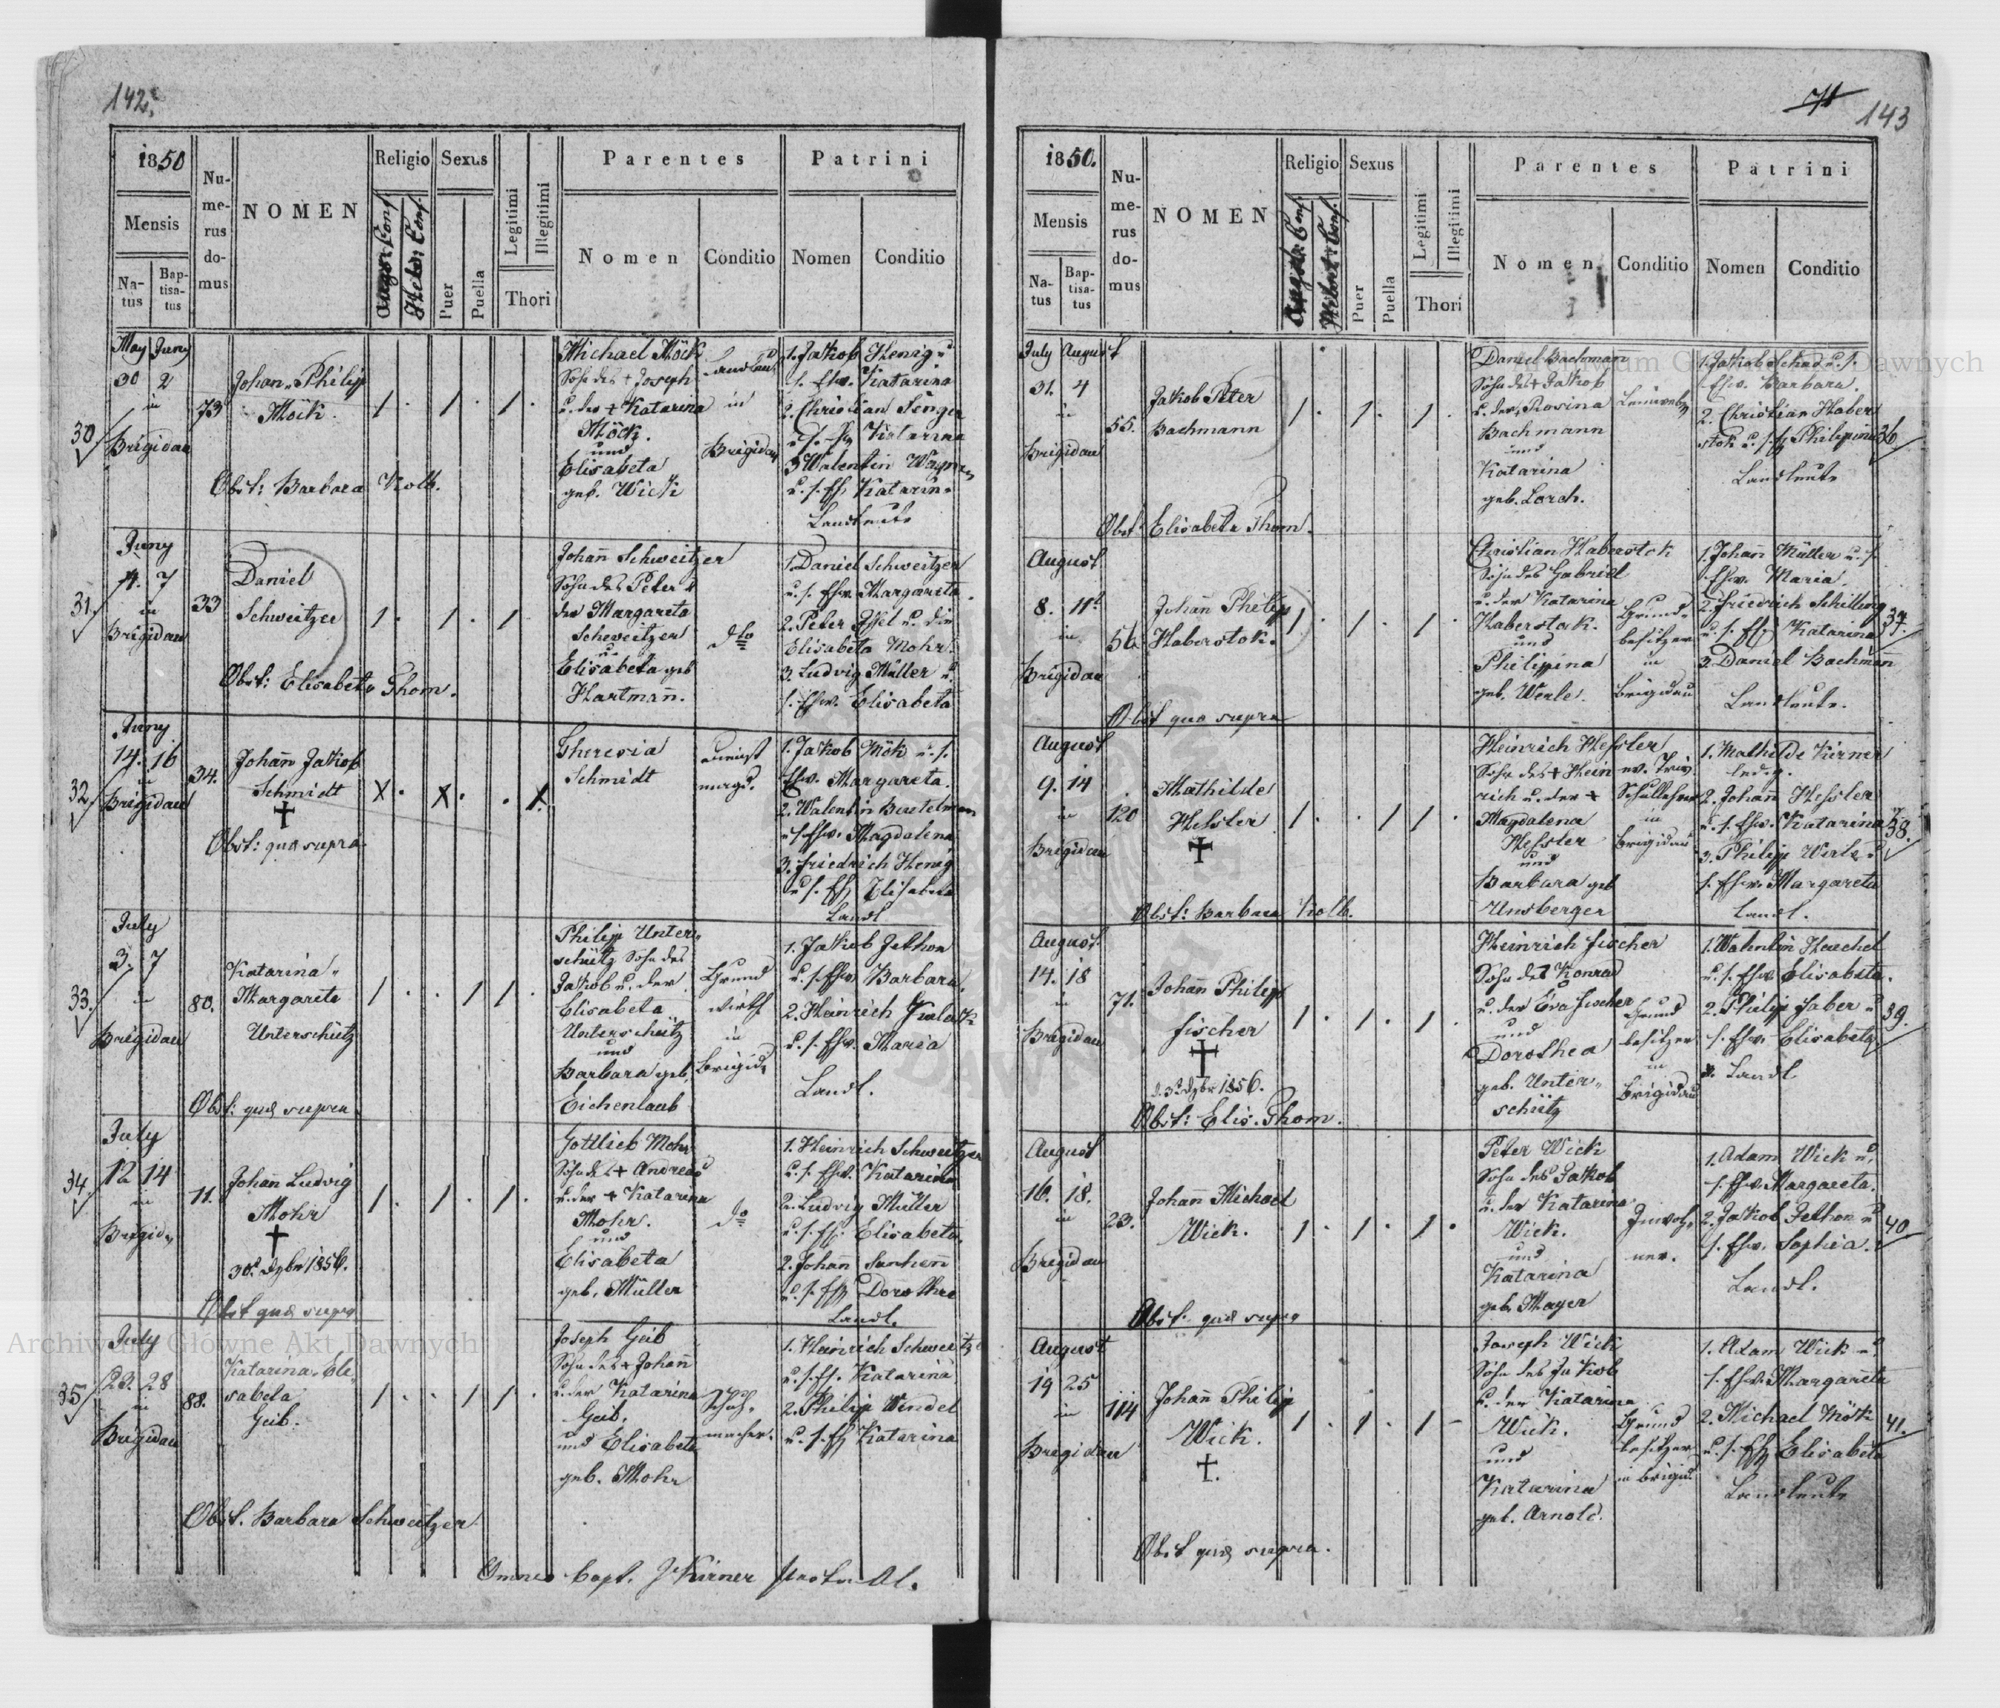 142.
1850
Mensis
Na-
tus
Bap-
tisa-
tus
Nu-
me-
rus
do-
mus
NOMEN
Religio
Augsb. Conf.
Helv. Conf.
Sexus
Puer
Puella
Legitimi
Illegitimi
Thori
Parentes
Nomen
Conditio
Patrini
Nomen
Conditio
30
May Juny
30 2
in
Brigidau
73
Johan Philip
Möck
Obst: Barbara Kolb.
Michael Möck
Sohn des + Joseph
u. der + Katarina
Möck.
und
Elisabeta
geb. Wick
in
Brigidau
1. Jakob Henig u
s. Ehw. Katarina
2. Christian Senger
u. s. Ehw Katarina
3 Walentin Wagner
u. s. Ehw Katarin
Landleute
31.
Juny
4. 7
in
Brigidau
33
Daniel
Schweitzer
Obst: Elisabeta Thom.
Johañ Schweitzer
Sohn des Peter u
der Margareta
Schweitzer
u.
Elisabeta geb
Hartmañ.
dto
1. Daniel Schweitzer
u. s. Ehw. Margareta.
2. Peter Assel u. die
Elisabeta Mohr.
3. Ludwig Müller u.
s. Ehw. Elisabeta
32.
Juny
14. 16
in
Brigidau
34.
Johañ Jakob
Schmidt
+
Obst: quæ supra
Theresia
Schmidt
1. Jakob Mök u. s.
Ehw. Margareta.
2. Walentin Beutelman
u s Ehw. Magdalena
3. Friedrich Henig
u s. Ehw Elisabeta
Landl
33.
July
3. 7
in
Brigidau
80.
Katarina
Margareta
Unterschütz
Obst: quæ supra
Philip Unter
schütz Sohn des
Jakob u. der
Elisabeta
Unterschütz
und
Barbara geb.
Eichenlaub
Grund
wirth
in
Brigid.
1. Jakob Jethon
u. s. Ehw. Barbara.
2. Heinrich Kulak
u. s. Ehw. Maria
Landl.
34
July
12 14
in
Brigid.
11.
Johañ Ludwig
Mohr
+
30t. Xber 1856.
Obst quæ supra
Gottlieb Mohr
Sohn des + Andreas
u. der + Katarina
Mohr.
und
Elisabeta
geb. Müller
do
1. Heinrich Schweitzer
u. s. Ehw. Katarina
2. Ludwig Müller
u. s. Ehw. Elisabeta.
2. Johañ Sanheñ
u. s. Ehw Dorothea
Landl.
35
July
23. 28
in
Brigidau
88.
Katarina Eli-
sabeta
Geib.
Obst. Barbara Schweitzer
Joseph Geib
Sohn des + Johañ
u. der Katarina
Geib.
und Elisabeta
geb. Mohr
Schuh-
macher.
1. Heinrich Schweitz
u. s. Ehw. Katarina
2. Philip Windel
u. s. Ehw Katarina
Omnes bapt. J Kirner pastor Al.
71
143
1850.
Mensis
Na-
tus
Bap-
tisa-
tus
Nu-
me-
rus
do-
mus
NOMEN
Religio
Augsb. Conf.
Helvet. Conf.
Sexus
Puer
Puella
Legitimi
Illegitimi
Thori
Parentes
Nomen
Conditio
Patrini
Nomen
Conditio
July August
31. 4
in
Brigidau
55.
Jakob Peter
Bachmann
Obst Elisabeta Thom.
Daniel Bachman
Sohn des + Jakob
u. der Rosina
Bachmann
und
Katarina
geb. Lorch.
Leinweber
1. Jakob Schad u. s.
Ehw. Barbara.
2. Christian Haber
stok u. s. Ehw Philipina
Landleute
36
August
8. 11t
in
Brigidau
56
Johañ Philip
Haberstok.
Obst quæ supra
Christian Haberstok
Sohn des Gabriel
u. der Katarina
Haberstok.
und
Philippina
geb. Werle.
Grund-
besitzer
in
Brigidau
1. Johañ Müller u. s.
Ehw. Maria.
2. Friedrich Schilling
u. s. Ehw Katarina
3. Daniel Bachmañ
Landleute.
37.
August
9. 14
in
Brigidau
120
Mathilde
Hessler
+
Obst: Barbara Kolb.
Heinrich Hessler
Sohn des + Hein
rich u. der +
Magdalena
Hessler
und
Barbara geb
Unsberger
ev. Triv.
Schullehrer
in
Brigidau
1. Mathilde Kirner
ledig.
2. Johañ Hessler
u. s. Ehw. Katarina
3. Philip Werle u
s. Ehw. Margareta
Landl.
38.
August
14. 18
in
Brigidau
71.
Johañ Philip
Fischer
+
d. 3t Xber 1856.
Obst: Elis. Thom.
Heinrich Fischer
Sohn des Konrad
u. der Eva Fischer
und
Dorothea
geb. Unter-
schütz
Grund
besitzer
in
Brigidau
1. Walentin Haschel
u. s. Ehw. Elisabeta.
2. Philip Faber u
s. Ehw. Elisabeta
Landl
39.
August
16. 18.
in
Brigidau
23.
Johañ Michael
Wick.
Obst. quæ supra
Peter Wick
Sohn des Jakob
u. der Katarina
Wick.
und
Katarina
geb. Mayer
Inwoh-
ner.
1. Adam Wick u.
s. Ehw. Margareta.
2. Jakob Jethon u
s. Ehw. Sophia.
Landl.
40
August
19 25
in
Brigidau
114
Johañ Philip
Wick.
+.
Obst quæ supra.
Joseph Wick
Sohn des Jakob
u. der Katarina
Wick.
und
Katarina
geb. Arnold.
Grund
besitzer
in Brigid
1. Adam Wick u
s. Ehw. Margareta
2. Michael Mök
u. s. Ehw Elisabeta
Landleute
41.
Archiwum Główne Akt Dawnych
Archiwum Główne Akt Dawnych